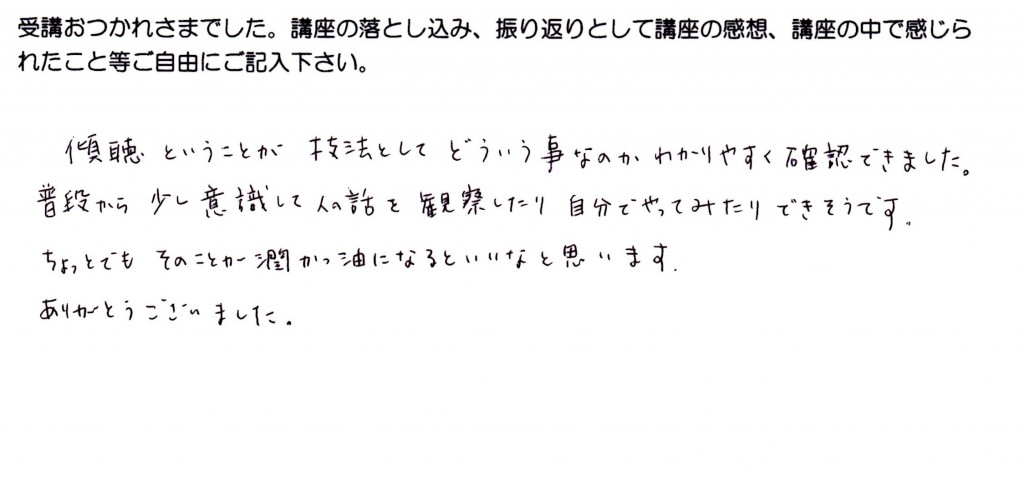 受講おつかれさまでした。講座の落とし込み、振り返りとして講座の感想、講座の中で感じら
れたこと等ご自由にご記入下さい。
傾聴ということが 技法として どういう事なのか わかりやすく確認できました。
普段から 少し意識して 人の話を 観察したり 自分でやってみたり できそうです。
ちょっとでも そのことが潤かつ油になるといいなと思います。
ありがとうございました。